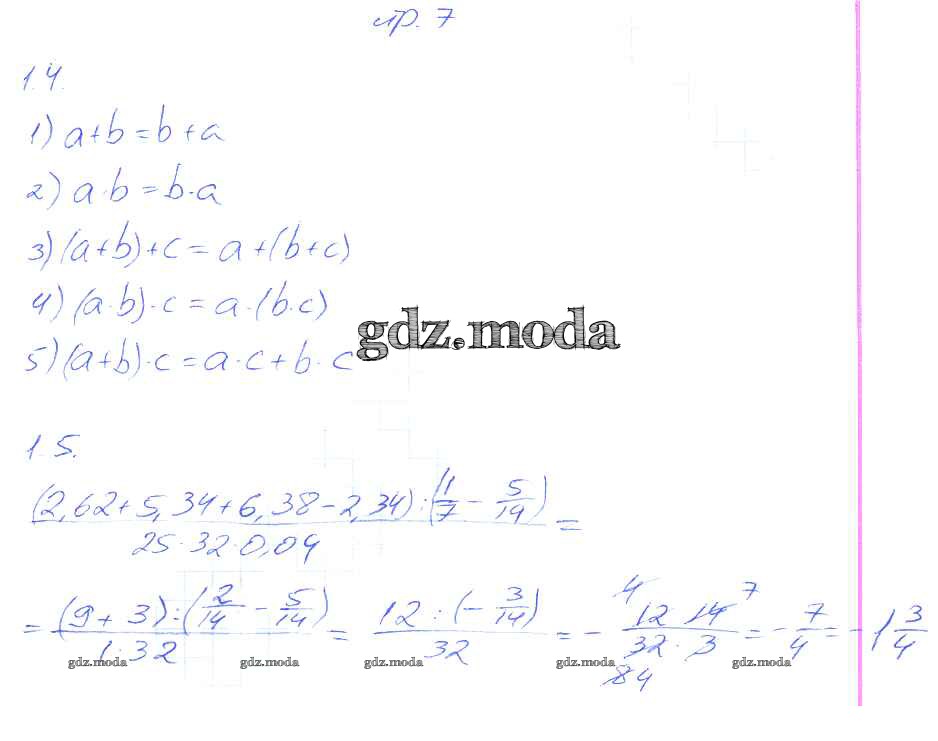 стр. 7
1.4.
1) a+b=b+a
2) a·b=b·a
3) (a+b)+c=a+(b+c)
4) (a·b)·c=a·(b·c)
gdz.moda
5) (a+b)·c=a·c+b·c
1.5.
(2,62+5,34+6,38-2,34):(1/7 - 5/14) =
25·32·0,04
= (9+3):(2/14 - 5/14) / 1·32 = 12:(-3/14) / 32 = - 12·14 / 32·3 = - 7/4 = -1 3/4
4 7
8 4
gdz.moda gdz.moda gdz.moda gdz.moda